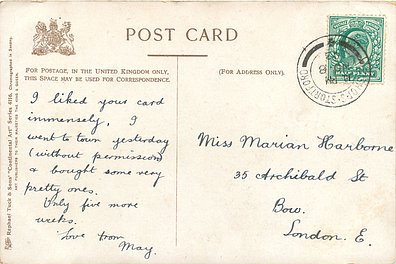 POST CARD
FOR POSTAGE, IN THE UNITED KINGDOM ONLY,
THIS SPACE MAY BE USED FOR CORRESPONDENCE
(FOR ADDRESS ONLY).
I liked your card
immensely, I
went to town yesterday
(without permission)
& bought some very
pretty ones.
Only five more
weeks.
Love from
May.
Miss Marian Harborne
35 Archibald St
Bow.
London. E.
Raphael Tuck & Sons' "Continental Art" Series 4116.
ART PUBLISHERS TO THEIR MAJESTIES THE KING & QUEEN.
HALF PENNY